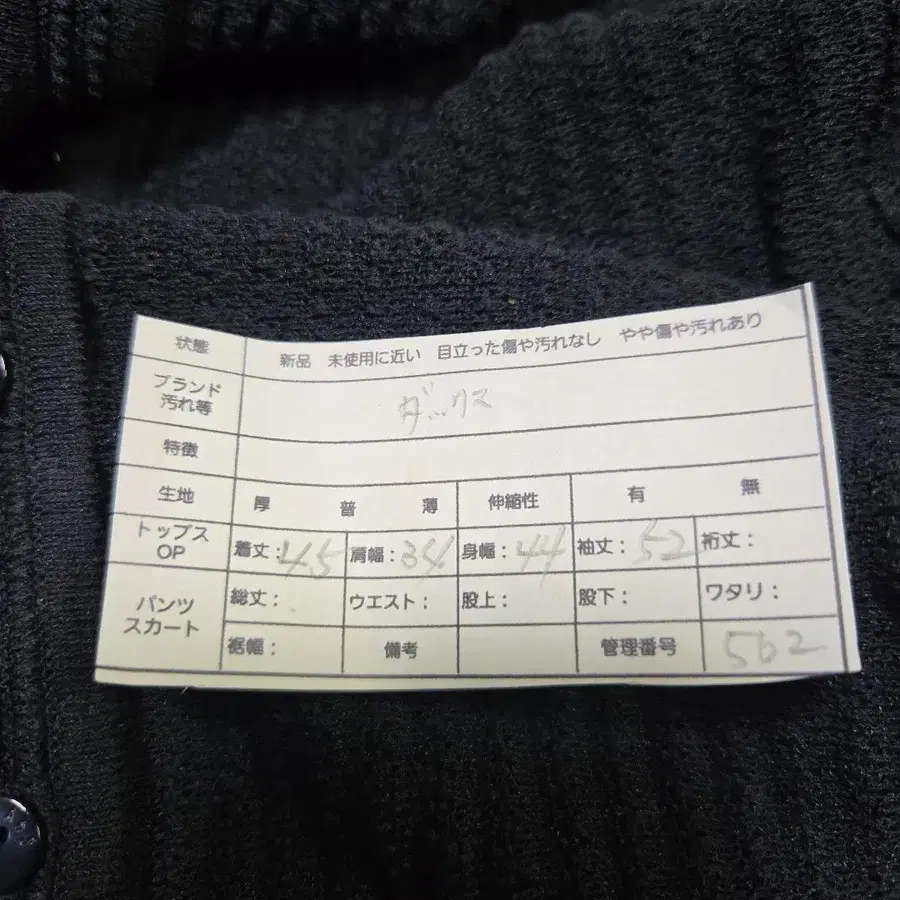 状態 新品 未使用に近い 目立った傷や汚れなし やや傷や汚れあり
ブランド
汚れ等 ダックス
特徴
生地 厚 普 薄 伸縮性 有 無
トップス
OP 着丈:45 肩幅:34 身幅:44 袖丈:52 裄丈:
パンツ
スカート 総丈: ウエスト: 股上: 股下: ワタリ:
裾幅: 備考 管理番号 502